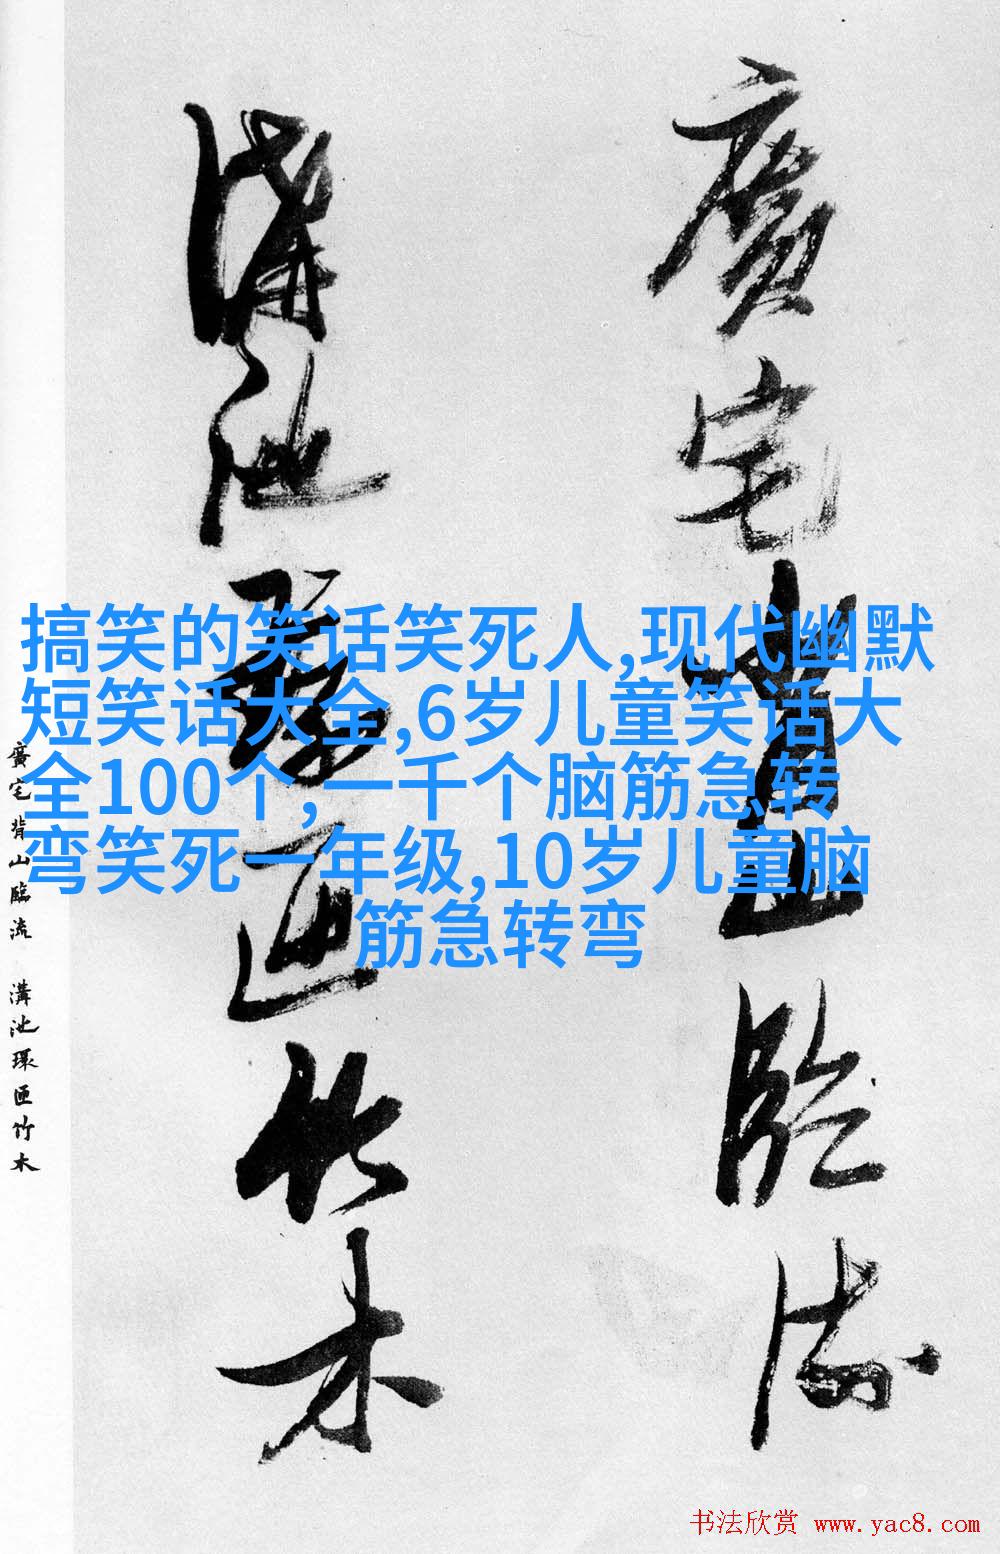 廣宅背山臨流
溝池環匝竹木
搞笑的笑话笑死人,现代幽默
短笑话大全,6岁儿童笑话大
全100个,一千个脑筋急转
弯笑死一年级,10岁儿童脑
筋急转弯
廣宅背山臨流 溝池環匝竹木
书法欣赏 www.yac8.com